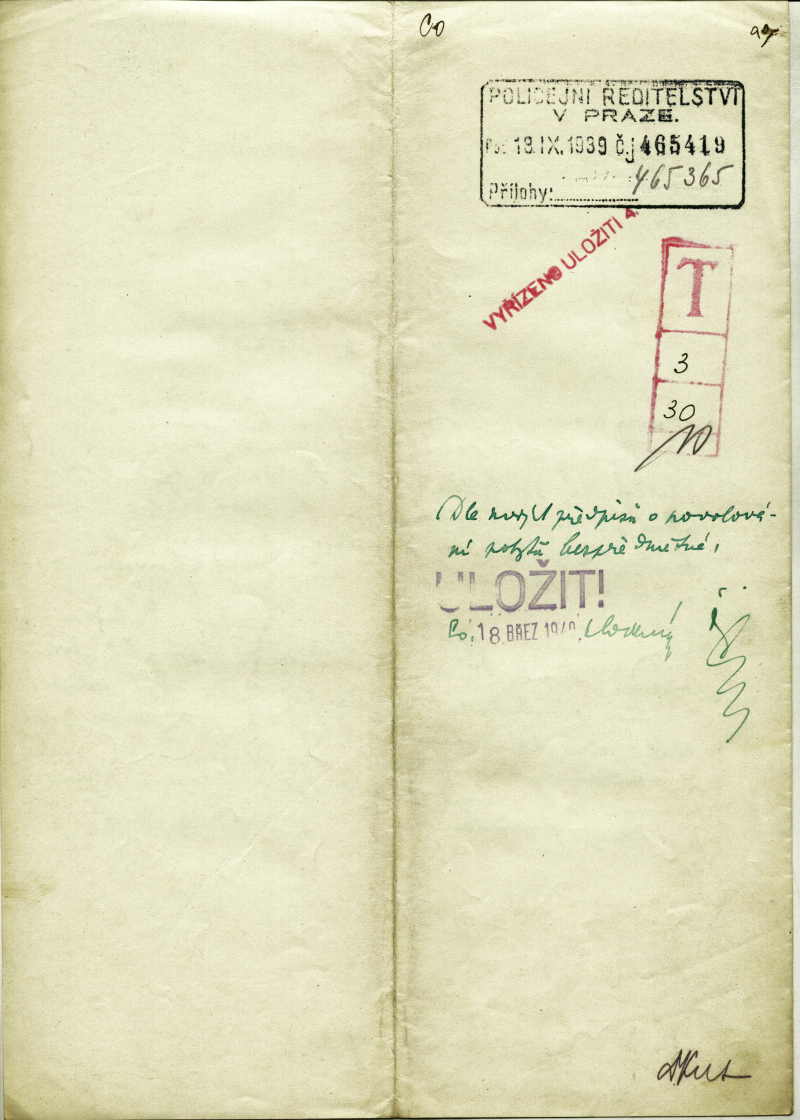 Co
POLICEJNÍ ŘEDITELSTVÍ
V PRAZE.
18.IX.1939 č.j 465419
465365
Přílohy:
VYŘÍZENO ULOŽITI 4.
T
3
30
Dle nových předpisů o povolová-
ní pobytů bezpředmětné,
ULOŽIT!
Co, 18 BŘEZ 1940,